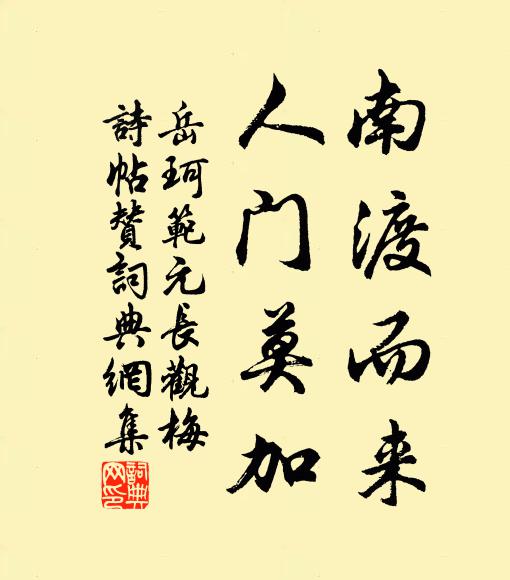 南渡而来
人门莫加
岳珂範元長觀梅
詩帖贊詞典網集
詞典网印